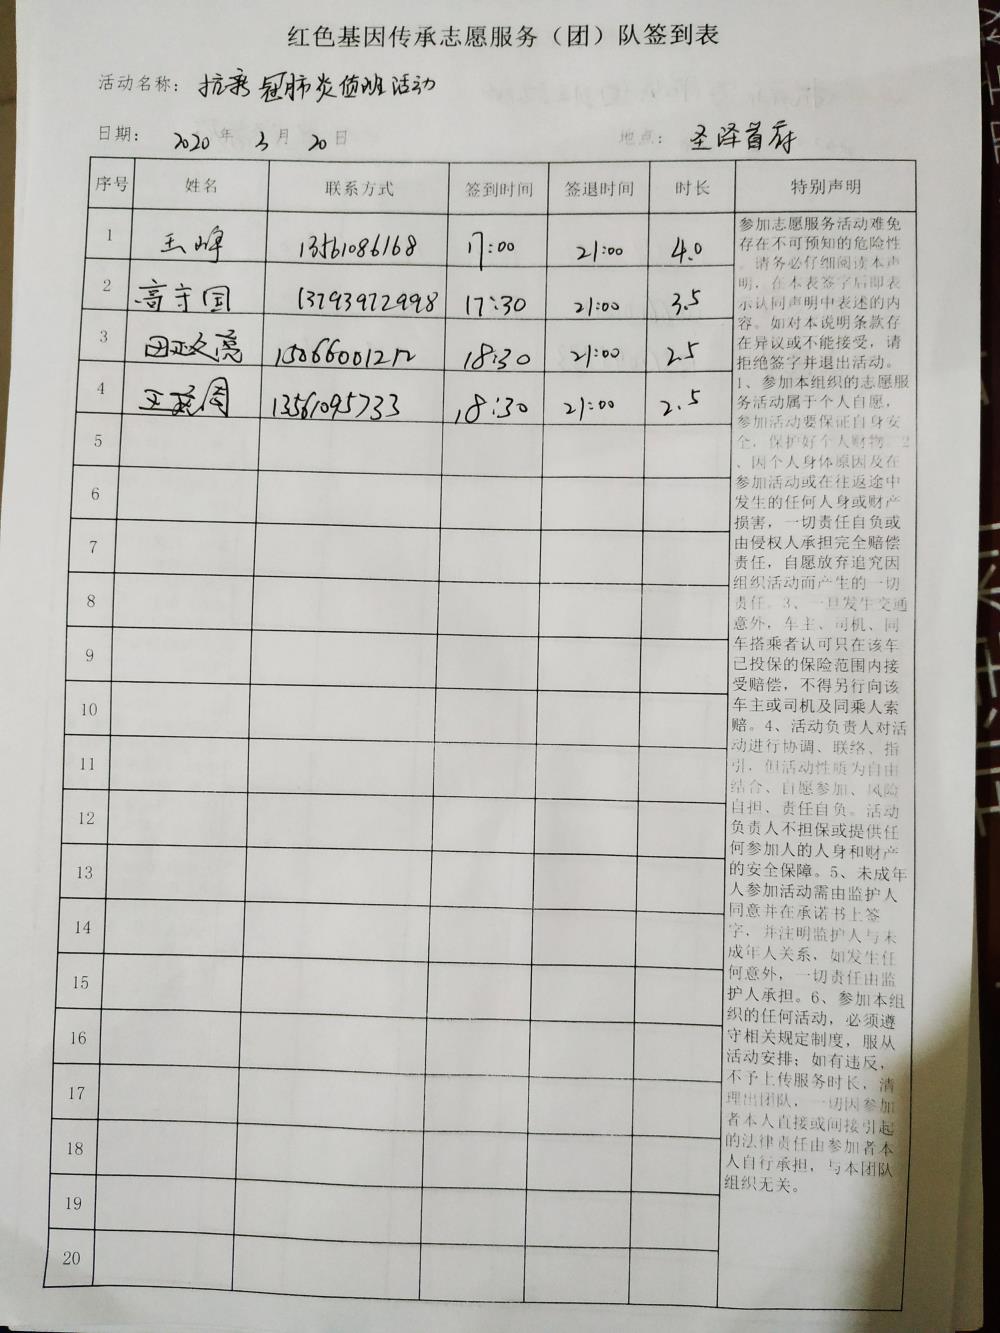 红色基因传承志愿服务（团）队签到表
活动名称： 抗新冠肺炎值班活动
日期： 2020 年 3 月 20 日 地点： 圣泽首府
序号 姓名 联系方式 签到时间 签退时间 时长 特别声明
1 王峰 13561086168 17:00 21:00 4.0
2 高守国 13793972998 17:30 21:00 3.5
3 18:30 21:00 2.5
4 13561095733 18:30 21:00 2.5
5
6
7
8
9
10
11
12
13
14
15
16
17
18
19
20
参加志愿服务活动难免
存在不可预知的危险性
。请务必仔细阅读本声
明，在本表签字后即表
示认同声明中表述的内
容。如对本说明条款存
在异议或不能接受，请
拒绝签字并退出活动。
1、参加本组织的志愿服
务活动属于个人自愿，
参加活动要保证自身安
全，保护好个人财物。2
、因个人身体原因及在
参加活动或在往返途中
发生的任何人身或财产
损害，一切责任自负或
由侵权人承担完全赔偿
责任，自愿放弃追究因
组织活动而产生的一切
责任。3、一旦发生交通
意外，车主、司机、同
车搭乘者认可只在该车
已投保的保险范围内接
受赔偿，不得另行向该
车主或司机及同乘人索
赔。4、活动负责人对活
动进行协调、联络、指
引，但活动性质为自由
结合、自愿参加、风险
自担、责任自负。活动
负责人不担保或提供任
何参加人的人身和财产
的安全保障。5、未成年
人参加活动需由监护人
同意并在承诺书上签
字，并注明监护人与未
成年人关系，如发生任
何意外，一切责任由监
护人承担。6、参加本组
织的任何活动，必须遵
守相关规定制度，服从
活动安排；如有违反，
不予上传服务时长，清
理出团队，一切因参加
者本人直接或间接引起
的法律责任由参加者本
人自行承担，与本团队
组织无关。